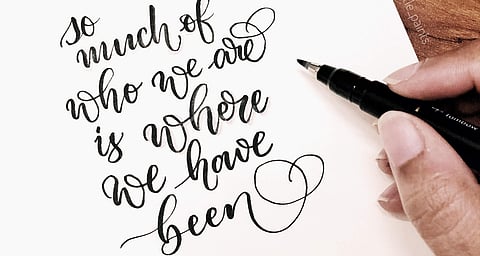 so
much of
who we are
is where
we have
been